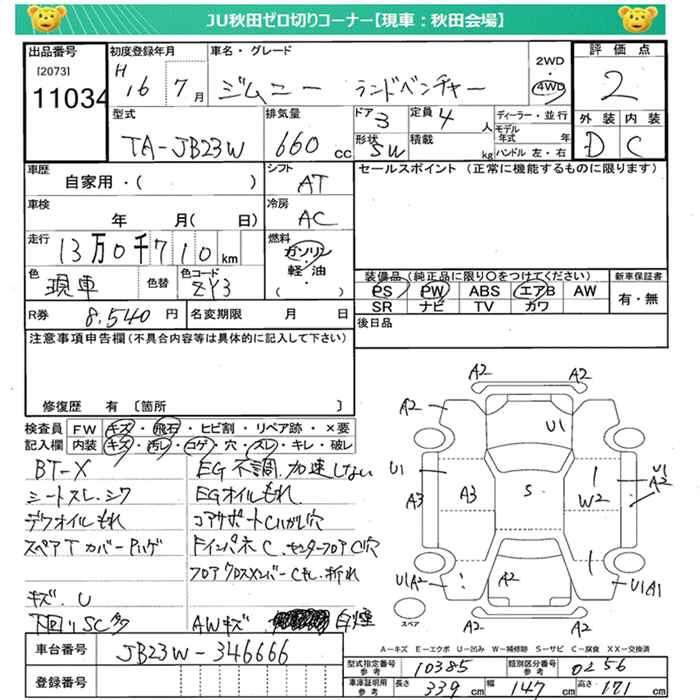 JU秋田ゼロ切りコーナー【現車：秋田会場】
出品番号 初度登録年月 車名・グレード 2WD 評価点
[2073] 11034 H16 7月 ジムニー ランドベンチャー 4WD 2
型式 排気量 ドア 3 定員 4人 ディーラー・並行 外装 内装
モデル年式 年
TA-JB23W 660cc 形状 SW 積載 kg ハンドル 左・右 D C
車歴 シフト セールスポイント（正常に機能するものに限ります）
自家用・（ ） AT
車検 冷房
年 月（ 日） AC
走行 燃料
13万0千710km ガソリン
色 色替 色コード 軽・油
現車 ZY3 （ ）
装備品（純正品に限り〇をつけてください） 新車保証書
PS PW ABS エアB AW 有・無
SR ナビ TV カワ
R券 8,540円 名変期限 月 日 後日品
注意事項申告欄（不具合内容等は具体的に記入して下さい）
修復歴 有 〔箇所 〕
検査員 FW キズ・飛石・ヒビ割・リペア跡・×要
記入欄 内装 キズ・汚レ・コゲ・穴・スレ・キレ・破レ
BT-X EG不調.加速しない
シートスレ.シワ EGオイルもれ
デフオイルもれ コアサポートCハガレ穴
スペアTカバー FインパネC.センターフロアC穴
フロアクロスメンバーCモレ.折れ
キズ.U
下回りSC多 AWキズ 白煙
A2 A2
A2 U1 A2
U1 U1
A3 A3 S W2 A2
U1A2 A2 U1A1
A2 A2
スペア
A－キズ E－エクボ U－凹み W－補修跡 S－サビ C－腐食 XX－交換済
車台番号 JB23W-346666
型式指定番号 参考 10385 類別区分番号 参考 0256
登録番号
車庫証明用 参考 長さ 339cm 幅 147cm 高さ 171cm